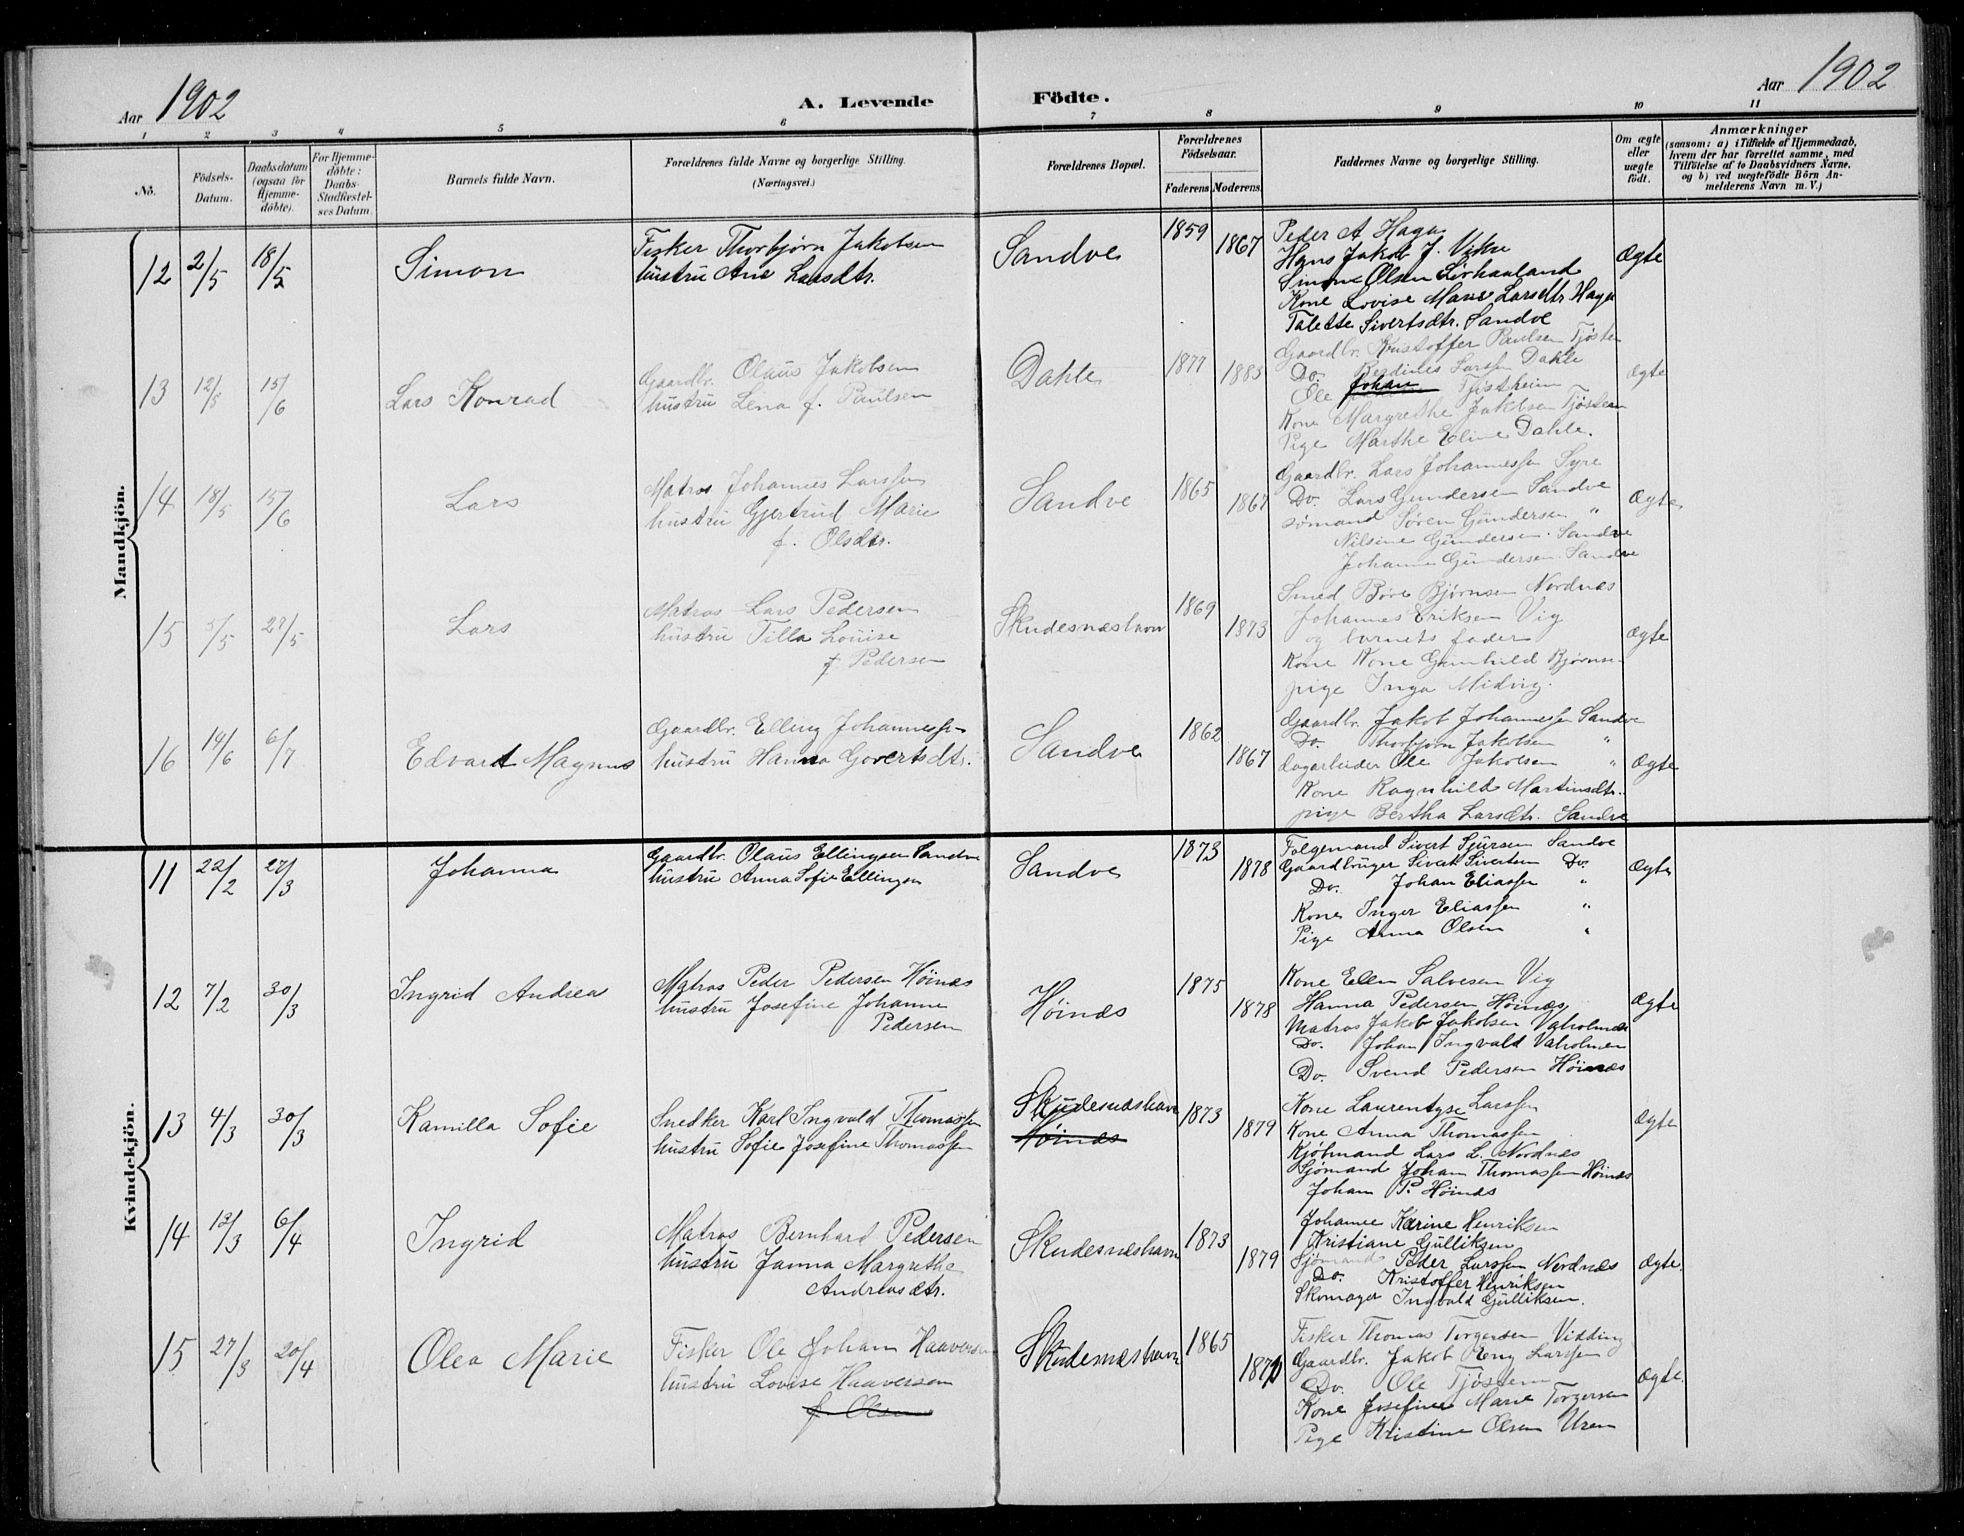 Aar 1902
A. Levende Födte.
Aar 1902
1 2 3 4 5 6 7 8 9 10 11
No.
Födsels-Datum.
Daabsdatum (ogsaa för Hjemme-döbte).
For Hjemme-döbte: Daabs-Stadfæstel-ses Datum.
Barnets fulde Navn.
Forældrenes fulde Navne og borgerlige Stilling.
(Næringsvei.)
Forældrenes Bopæl.
Forældrenes Födselsaar.
Faderens. Moderens.
Faddernes Navne og borgerlige Stilling.
Om ægte eller uægte födt.
Anmærkninger
(saasom: a) i Tilfælde af Hjemmedaab,
hvem der har forrettet samme, med
Tilföielse af to Daabsvidners Navne,
og b) ved uægtefödte Börn An-
melderens Navn m. V.)
Mandkjön.
12 2/5 18/5 Simon
Fisker Thorbjörn Jakobsen
hustru Ane Larsdtr.
Sandve 1859 1867
Peder A Haga
Hans Jakob J. Vikre
Simon Olsen Sirhaaland
Kone Lovise Marie Larsdtr. Haga
Talette Sivertsdtr. Sandve
Ægte
13 12/5 15/6 Lars Konrad
Gaardbr. Olaus Jakobsen
hustru Lena f. Paulsen
Dahle 1877 1885
Gaardbr. Kristoffer Paulsen Tjösten
Do. Berdines Larssen Dahle
Ole Johan Tjistheim
Kone Margrethe Jakobsen Tjösten
Pige Marthe Eline Dahle.
Ægte
14 18/5 15/6 Lars
Matros Johannes Larssen
hustru Gjertrud Marie
f. Olsdtr.
Sandve 1865 1867
Gaardbr. Lars Johannessen Syre
Do. Lars Gundersen Sandve
sömand Sören Gundersen "
Nilsine Gundersen. Sandve
Johanne Gundersen. Sandve
Ægte
15 5/5 28/5 Lars
Matros Lars Pedersen
hustru Tilla Louise
f. Pedersen
Skudesnæshavn 1869 1873
Smed Böre Björnsen Nordnæs
Johannes Eriksen Vig
og barnets fader
Kone Kone Gunhild Björnse
pige Inga Midvig.
Ægte
16 14/6 6/7 Edvart Magnus
Gaardbr. Elling Johannessen
hustru Hanna Govertsdtr.
Sandve 1862 1867
Gaardbr. Jakob Johannessen Sandve
Do. Thorbjörn Jakobsen "
Dagarbeider Ole Jakobsen "
Kone Ragnhild Martinsdtr.
pige Bertha Larsdtr. Sandve
Ægte
Kvindekjön.
11 22/2 27/3 Johanna
Gaardbr. Olaus Ellingsen Sandve
hustru Anna Sofie Ellingsen
Sandve 1873 1878
Folgemand Sivert Sjursen Sandve
Gaardbruger Sivert Sivertsen Do.
Do. Johan Eliassen "
Kone Inger Eliassen "
Pige Anna Olsen "
Ægte
12 7/2 30/3 Ingrid Andrea
Matros Peder Pedersen Höinæs
hustru Josefine Johanne
Pedersen
Höinæs 1875 1878
Kone Ellen Salvesen Vig
Hanna Pedersen Höinæs
Matros Jakob Jakobsen Vaholmen
Do. Johan Ingvald Vaholmen
Do. Svend Pedersen Höinæs
Ægte
13 4/3 30/3 Kamilla Sofie
Snedker Karl Ingvald Thomassen
hustru Sofie Josefine Thomassen
Skudesnæshavn
Höinæs
1873 1879
Kone Laurentyse Larssen
Kone Anna Thomassen
Kjöbmand Lars L. Nordnæs
Sjömand Johan Thomassen Höinæs
Johan P. Höinæs
Ægte
14 13/3 6/4 Ingrid
Matros Bernhard Pedersen
hustru Janna Margrethe
Andreasdtr.
Skudesnæshavn 1873 1879
Johanne Karine Henriksen
Kristiane Gulliksen
Sjömand Peder Larssen Nordnæs
Do. Kristoffer Henriksen
Skomager Ingvald Gulliksen.
Ægte.
15 27/3 20/4 Olea Marie
Fisker Ole Johan Haaversen
hustru Lovise Haaversen
f. Olsen
Skudesnæshavn 1865
Fisker Thomas Torgersen Vidding
Gaardbr. Jakob Larssen
Do. Ole Tjösten
Kone Josefine Marie Torgersen
Pige Kristine Olsen Uren
Ægte.